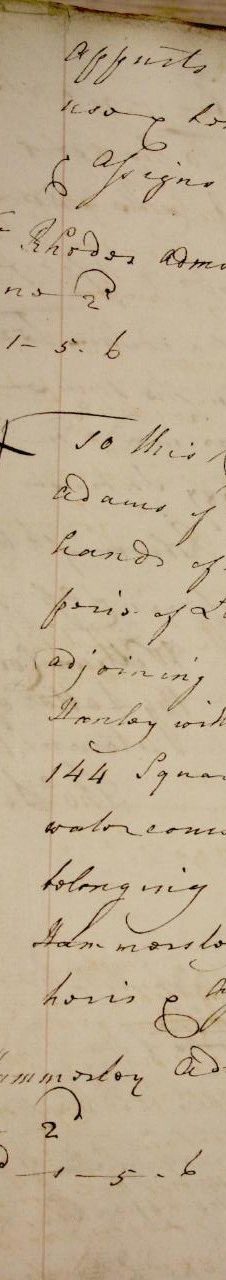 appurts
use & he
& assigns
Rhodes adm
ne 2d
1 - 5 - 6
To this
adams
hands of
peice of L
adjoining
Hanley with
144 Squa
water cour
belonging
Hammersle
heirs & A
ammersley Ad
2d
1 - 5 - 6